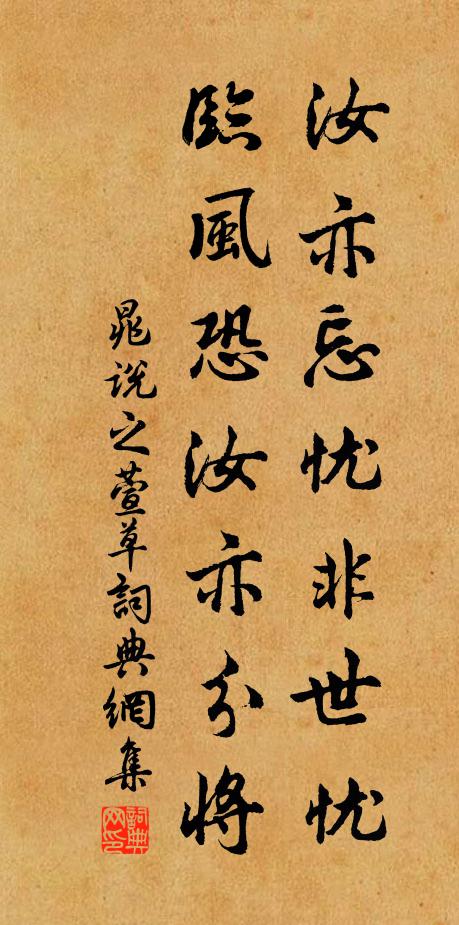 汝亦忘忧非世忧
臨風恐汝亦分将
晁説之萱草詞典網集
詞典网印